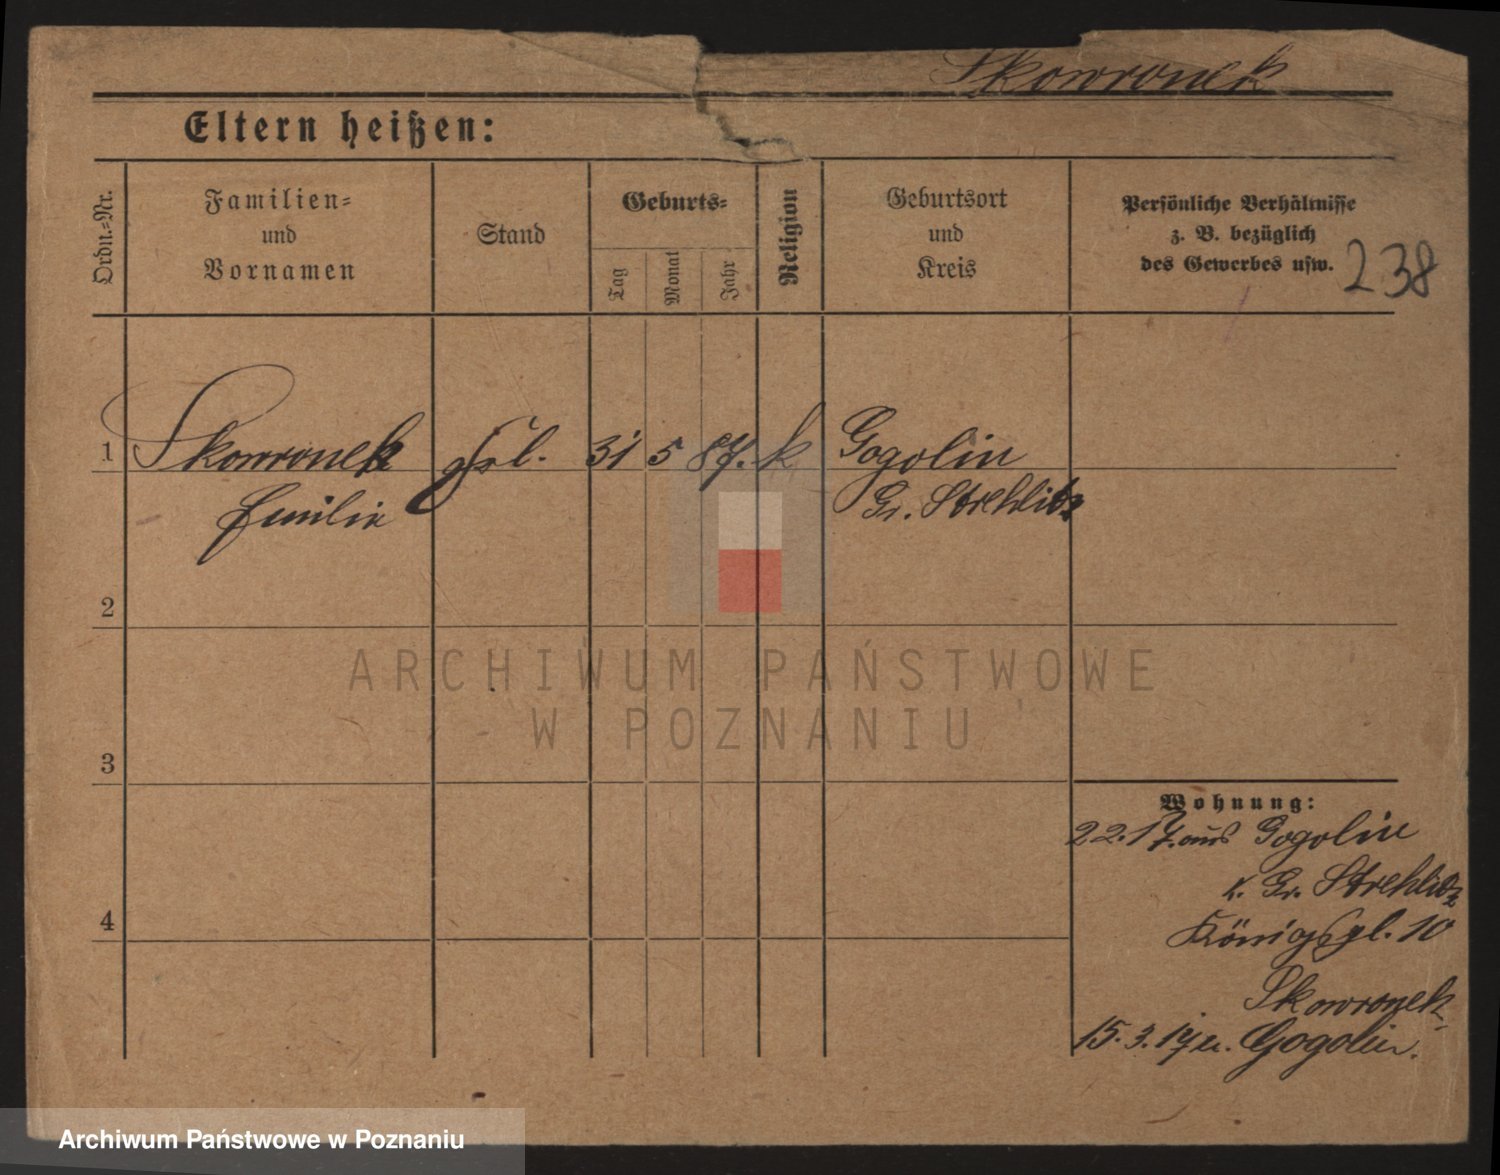 Skowronek
Eltern heißen:
Ordn.-Nr.
Familien-
und
Vornamen
Stand
Geburts-
Tag
Monat
Jahr
Religion
Geburtsort
und
Kreis
Persönliche Verhältnisse
z. B. bezüglich
des Gewerbes usw.
238
1 Skowronek Frl. 31 5 87. k Gogolin
Emilie Gr. Strehlitz
2
3
4
Wohnung:
22.17. aus Gogolin
K. Gr. Strehlitz
Königspl. 10
Skowronek
15.3.17 n. Gogolin.
ARCHIWUM PAŃSTWOWE
W POZNANIU
Archiwum Państwowe w Poznaniu